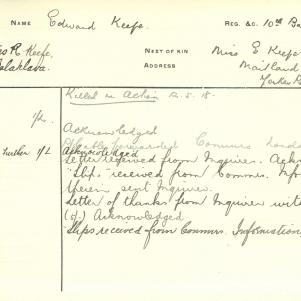 NAME Edward Keefe. REG. &C. 10th Ba
R. Keefe,
Balaklava.
NEXT OF KIN Miss E Keefe
ADDRESS Maitland
Yorke P
Killed in Action 2.5.15.
Acknowledged
forwarded Commrs Londo
Further I/L Acknowledged
Letter received from Inquirer. Ack
"Slip" received from Commrs. Info
therein sent Inquirer.
Letter of thanks from Inquirer wit
Acknowledged
Slips received from Commrs. Information